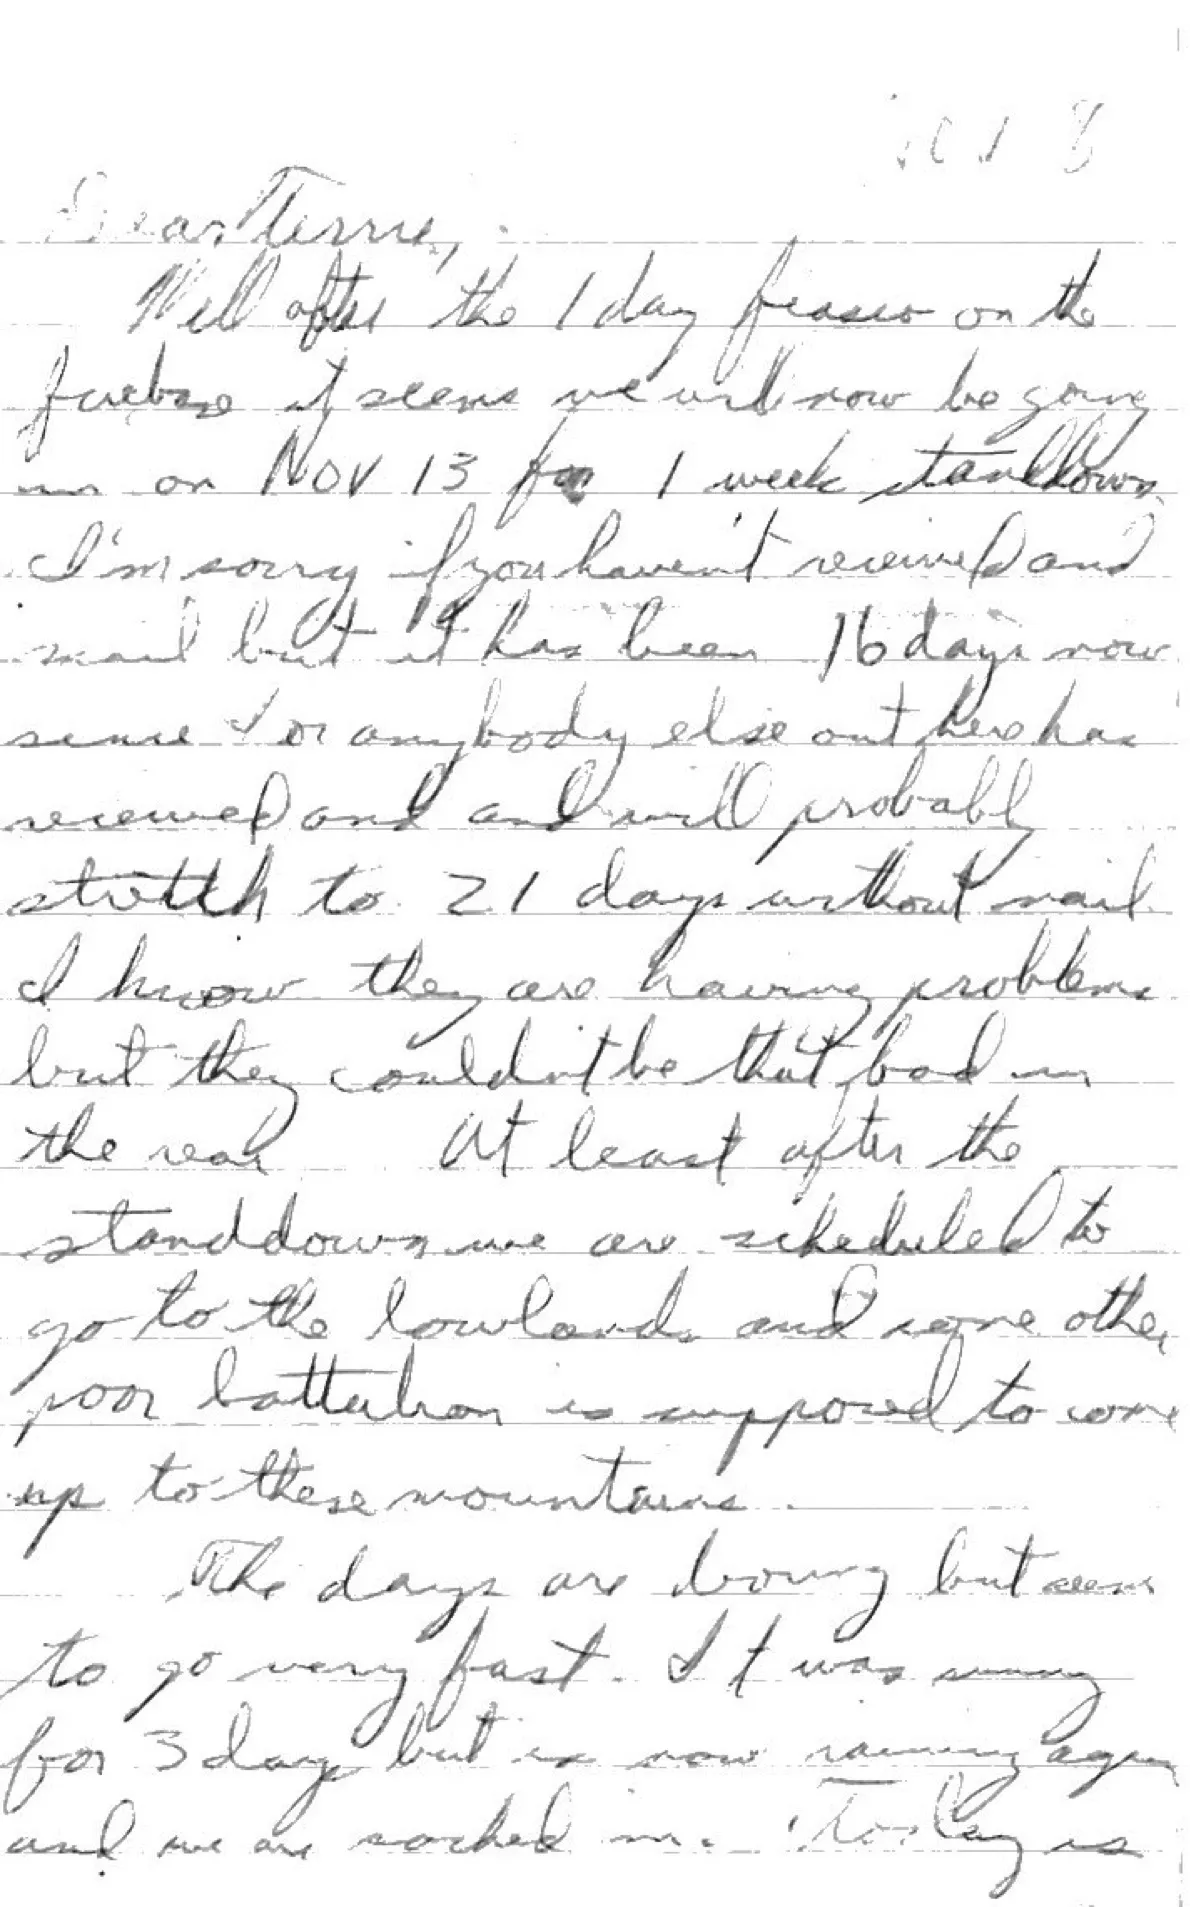 Dear Terrie,
Well after the 1 day fiasco on the
firebase it seems we will now be going
in on NOV 13 for 1 week standdown
I'm sorry if you haven't received and
mail but it has been 16 days now
since I or anybody else out here has
received and and will probably
stretch to 21 days without mail
I know they are having problems
but they couldn't be that bad in
the rear At least after the
standdown we are scheduled to
go to the lowlands and some other
poor battalion is supposed to come
up to these mountains.
The days are boring but seem
to go very fast. It was sunny
for 3 days but is now raining again
and we are socked in. Today is